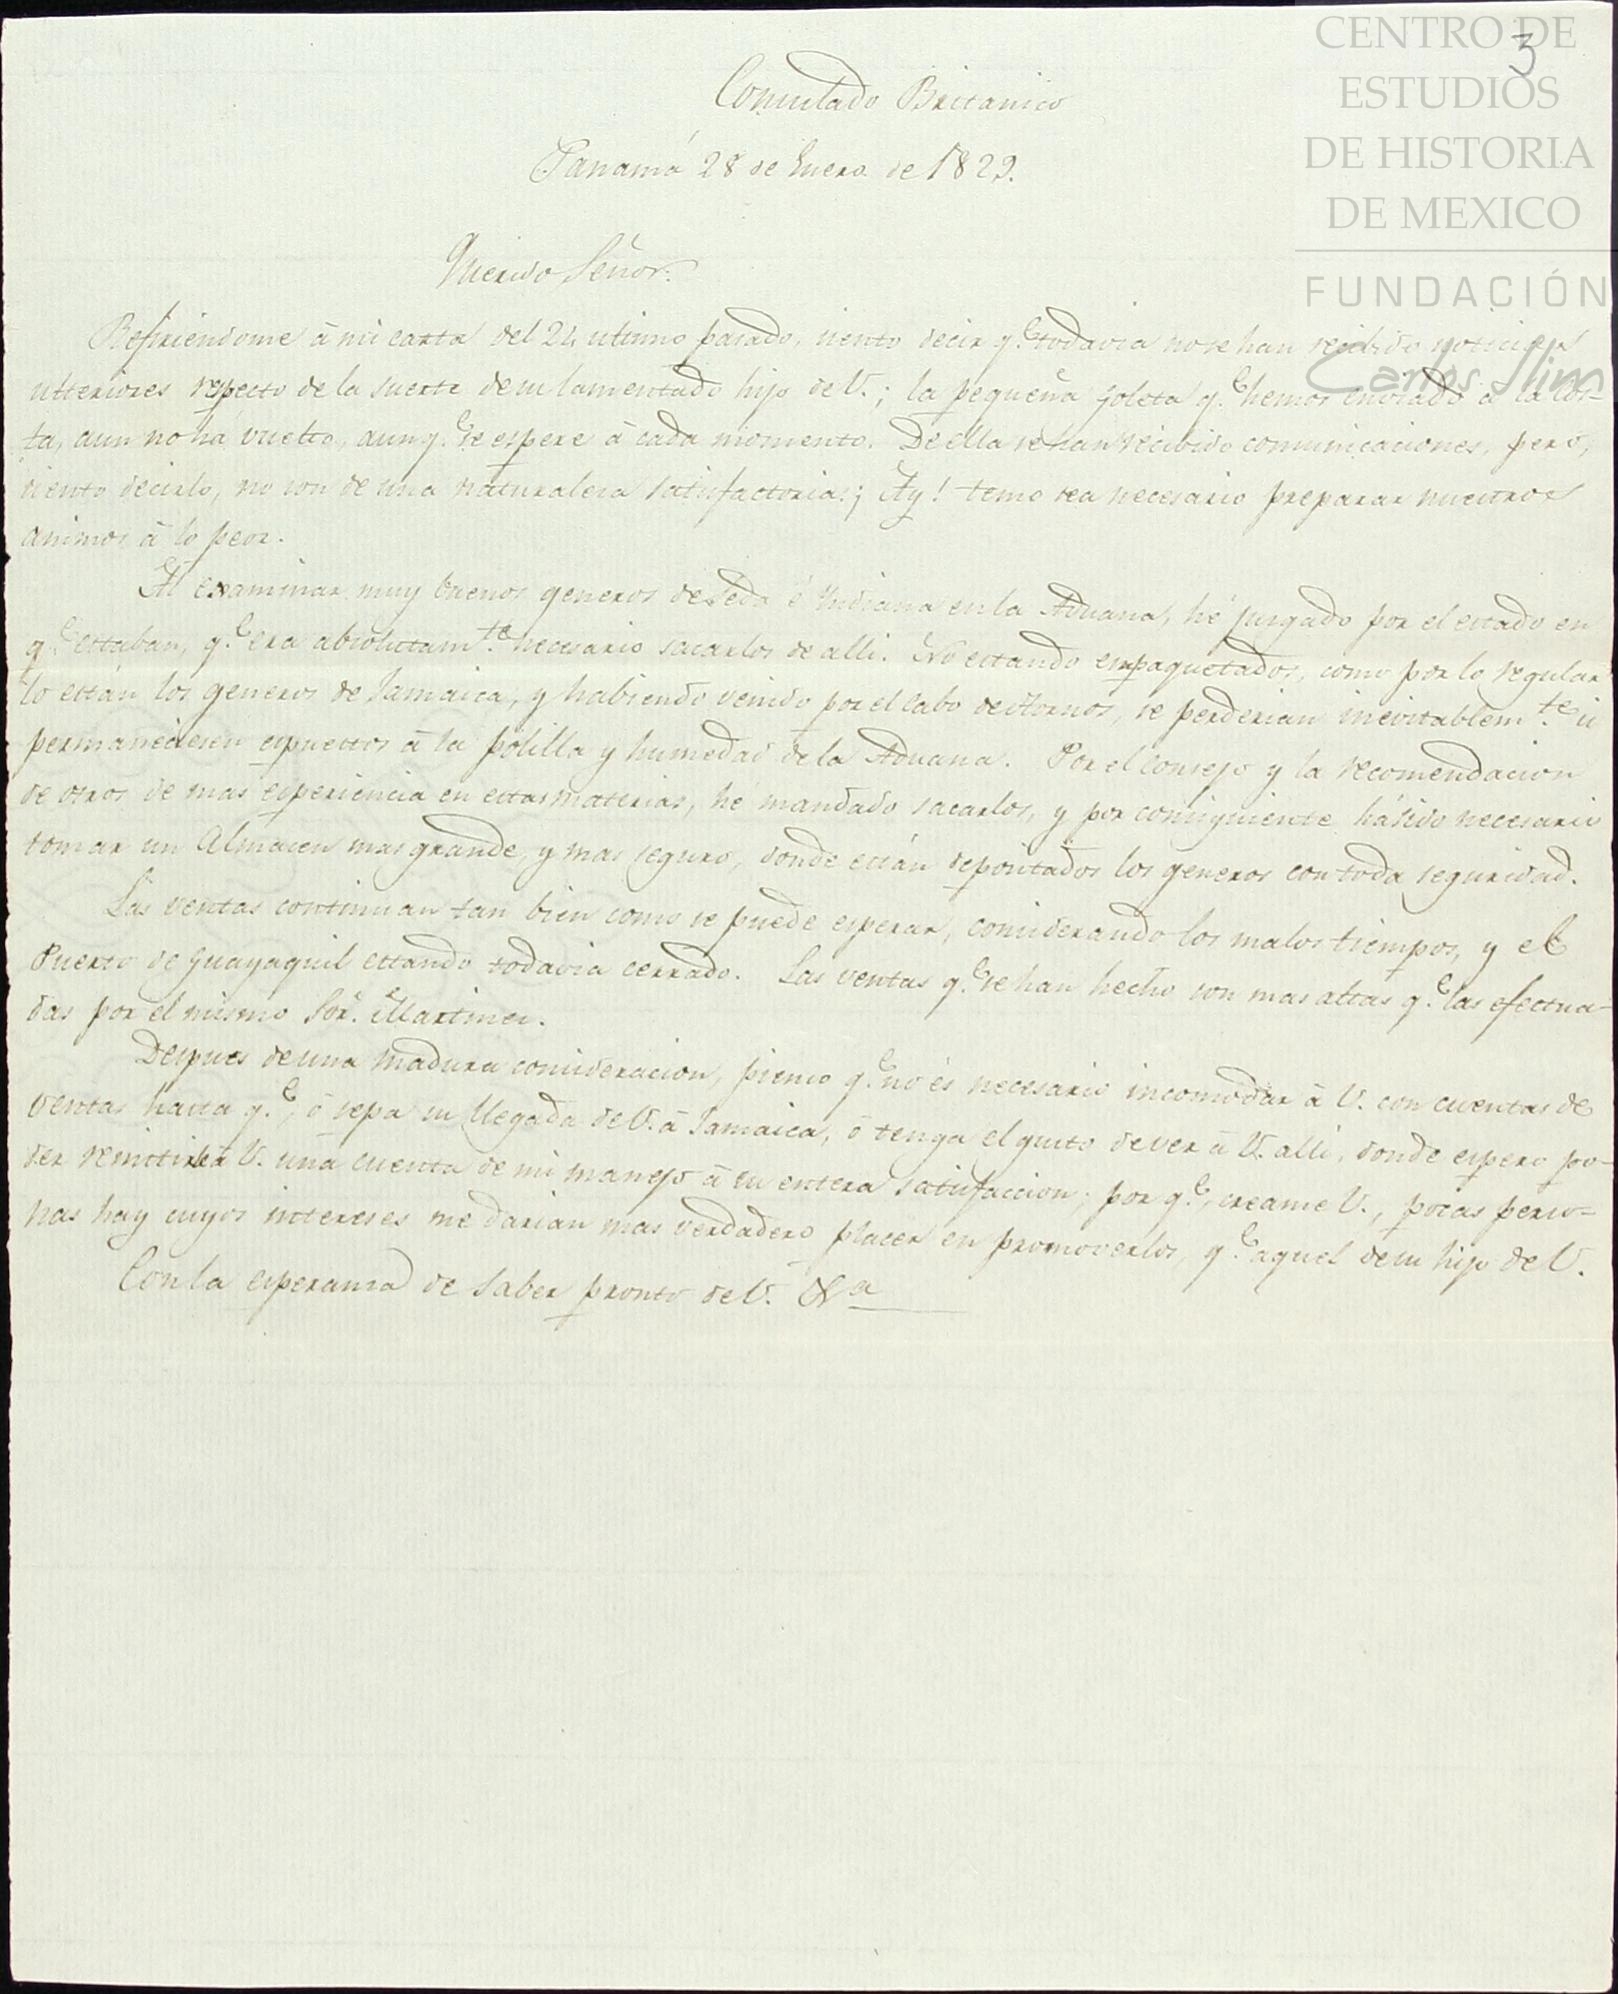 CENTRO DE
ESTUDIOS
DE HISTORIA
DE MEXICO
FUNDACIÓN
Carlos Slim
3
Consulado Britanico
Panamá 28 de Enero de 1829.
Querido Señor:
Refiriéndome à mi carta del 24 ultimo pasado, siento decir q.e todavia no se han recibido noticias
ulteriores respecto de la suerte de su lamentado hijo de V.; la pequeña goleta q.e hemos enviado à la Cos-
ta, aun no há vuelto, aunq.e se espere à cada momento. De ella se han recibido comunicaciones, pero,
siento decirlo, no son de una naturaleza satisfactoria; Ay! temo sea necesario preparar nuestros
animos à lo peor.
Al examinar muy buenos generos de Seda é Indiana en la Aduana, hé juzgado por el estado en
q.e estaban, q.e era absolutam.te necesario sacarlos de alli. No estando empaquetados, como por lo regular
lo están los generos de Jamaica, y habiendo venido por el Cabo de Hornos, se perderian inevitablem.te si
permaneciesen espuestos à la polilla y humedad de la Aduana. Por el consejo y la recomendacion
de otros de mas esperiencia en estas materias, hé mandado sacarlos, y por consiguiente há sido necesario
tomar un Almacen mas grande, y mas seguro, donde están depositados los generos con toda seguridad.
Las ventas continuan tan bien como se puede esperar, considerando los malos tiempos, y el
Puerto de Guayaquil estando todavia cerrado. Las ventas q.e se han hecho son mas altas q.e las efectua-
das por el mismo Sõr. Martinez.
Despues de una madura consideracion, pienso q.e no és necesario incomodar à V. con cuentas de
ventas hasta q.e, ó sepa su llegada de V. à Jamaica, ó tenga el gusto de ver à V. alli, donde espero po-
der remitirle à V. una cuenta de mi manejo à su entera satisfaccion; por q.e, creame V., pocas perso-
nas hay cuyos intereses me darian mas verdadero placer en promoverlos, q.e aquel de su hijo de V.
Con la esperanza de saber pronto de V. &a